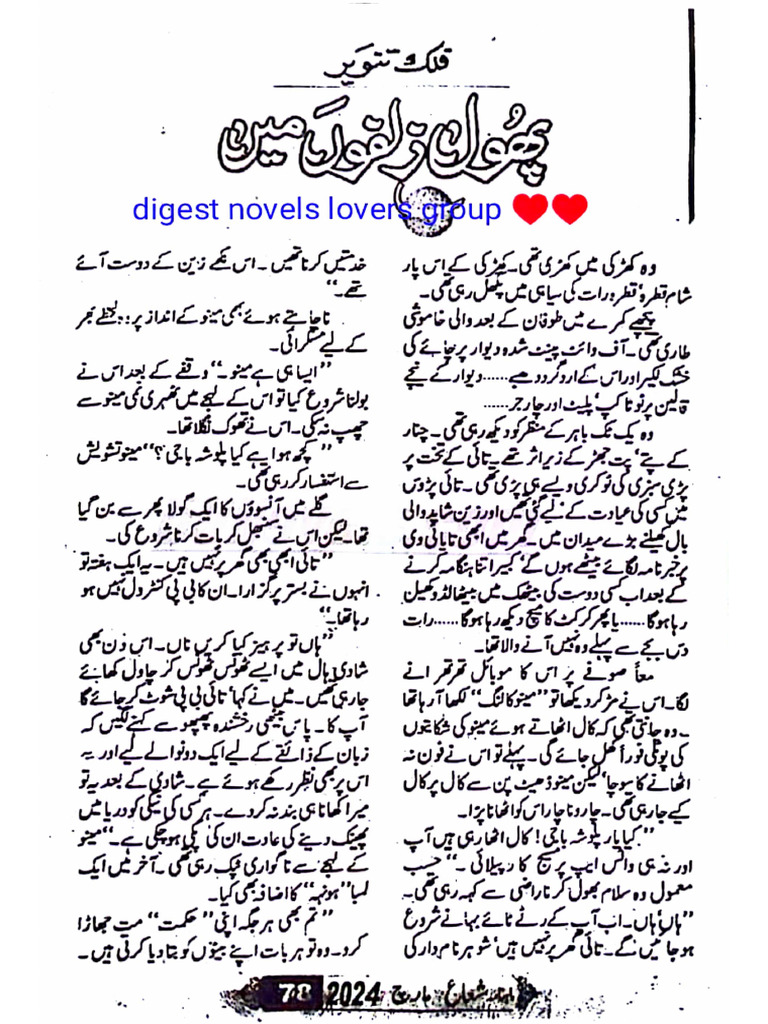 فلک تنویر
پھول زلفوں میں
digest novels lovers group ❤❤
وہ کھڑکی میں کھڑی تھی۔ کھڑکی کے اس پار
شام قطرہ، قطرہ رات کی سیاہی میں پگھل رہی تھی۔
پیچھے کمرے میں طوفان کے بعد والی خاموشی
طاری تھی۔ آف وائٹ پینٹ شدہ دیوار پر چائے کی
خشک لکیر اور اس کے اردگرد دھبے...... دیوار کے نیچے
قالین پر ٹوٹا کپ، پلیٹ اور چارجر......
وہ یک ٹک باہر کے منظر کو دیکھ رہی تھی۔ چنار
کے پتے، پت جھڑ کے زیر اثر تھے۔ تائی کے تخت پر
پڑی سبزی کی ٹوکری ویسے ہی پڑی تھی۔ تائی پڑوس
میں کسی کی عیادت کے لیے گئی تھیں اور زین شاید والی
بال کھیلنے بڑے میدان میں۔ گھر میں ابھی تایا ٹی وی
پر خبرنامہ لگائے بیٹھے ہوں گے، کبیر اتنا ہنگامہ کرنے
کے بعد اب کی دوست کی بیٹھک میں بیٹھا لڈو کھیل
رہا ہوگا...... یا پھر کرکٹ کا میچ دیکھ رہا ہوگا...... رات
دس بجے سے پہلے وہ نہیں آنے والا تھا۔
معاً صوفے پر اس کا موبائل تھرتھرانے
لگا۔ اس نے مڑ کر دیکھا تو ”مینو کالنگ“ لکھا آرہا تھا
۔ وہ جانتی تھی کہ کال اٹھاتے ہوئے مینو کی شکایتوں
کی پوٹلی فوراً کھل جائے گی۔ پہلے تو اس نے فون نہ
اٹھانے کا سوچا، لیکن مینو ڈھیٹ پن سے کال پر کال
کیے جارہی تھی۔ چاروناچار اس کو اٹھانا پڑا۔
”کیا یار پلوشہ باجی! کال اٹھا رہی ہیں آپ
اور نہ ہی واٹس ایپ پر میسج کا ریپلائی۔“ حسب
معمول وہ سلام بھول کر ناراضی سے کہہ رہی تھی۔
”ہاں، ہاں۔ اب آپ کے رٹے رٹائے بہانے شروع
ہوجائیں گے۔ تائی گھر پر نہیں ہیں، شوہر نامدار کی
خدمتیں کرنا تھیں۔ اس نکمے زین کے دوست آئے
تھے۔“
نا چاہتے ہوئے بھی مینو کے انداز پر وہ لحظے بھر
کے لیے مسکرائی۔
”ایسا ہی ہے مینو۔“ وقفے کے بعد اس نے
بولنا شروع کیا تو اس کے لہجے میں ٹھہری نمی مینو سے
چھپ نہ سکی۔ اس نے تھوک نگلا تھا۔
”کچھ ہوا ہے کیا پلوشہ باجی؟“ مینو تشویش
سے استفسار کر رہی تھی۔
گلے میں آنسوؤں کا ایک گولا پھر سے بن گیا
تھا۔ لیکن اس نے سنبھل کر بات کرنا شروع کی۔
”تائی ابھی بھی گھر پر نہیں ہیں۔ یہ ایک ہفتہ تو
انہوں نے بستر پر گزارا۔ ان کا بی پی کنٹرول نہیں ہو
رہا تھا۔“
”ہاں تو پرہیز کیا کریں ناں۔ اس دن بھی
شادی ہال میں ایسے ٹھونس ٹھونس کر چاول کھائے
جارہی تھیں۔ میں نے کہا، تائی بی پی شوٹ کر جائے گا
آپ کا۔ پاس بیٹھی رخشندہ پھپھو سے کہنے لگیں کہ
زبان کے ذائقے کے لیے ایک دو نوالے لیے اور یہ
اس پر بھی نظر رکھے ہوئے ہے۔ شادی کے بعد یہ تو
میرا کھانا ہی بند نہ کردے۔ ہر کسی کی نیکی کو دریا میں
پھینک دینے کی عادت ان کی پکی ہوچکی ہے۔“ مینو
کے لہجے سے ناگواری ٹپک رہی تھی۔ آخر میں ایک
لمبا ”ہونہہ“ کا اضافہ بھی کیا۔
”تم بھی ہر جگہ اپنی ”حکمت“ مت جھاڑا
کرو۔ وہ تو ہر بات اپنے بیٹوں کو بتا دیا کرتی ہیں۔
ماہنامہ شعاع مارچ 2024 78